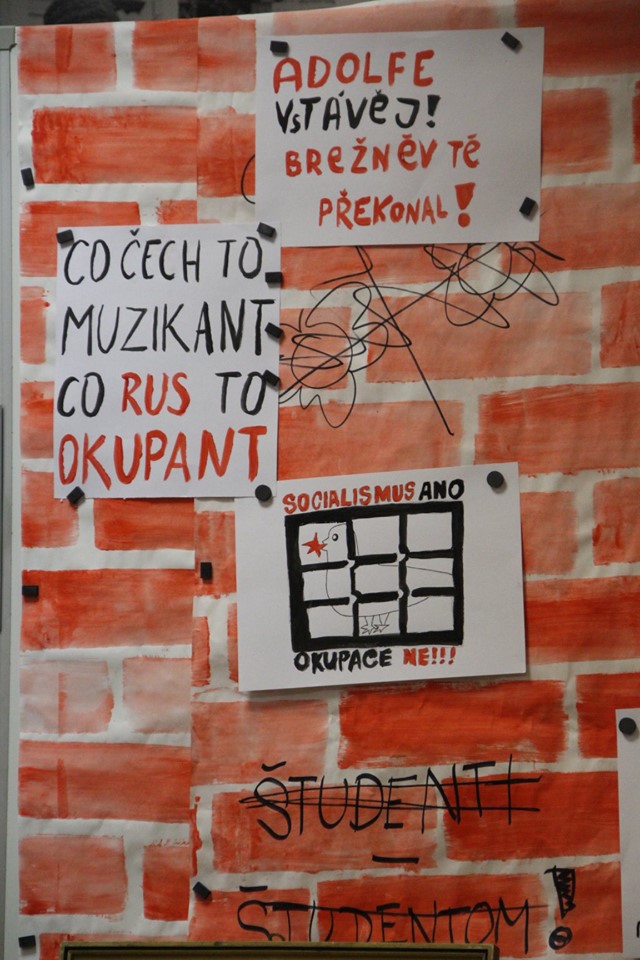 ADOLFE
VSTÁVĚJ!
BREŽNĚV TĚ
PŘEKONAL!
CO ČECH TO
MUZIKANT
CO RUS TO
OKUPANT
SOCIALISMUS ANO
OKUPACE NE!!!
ŠTUDENTI
–
ŠTUDENTOM!